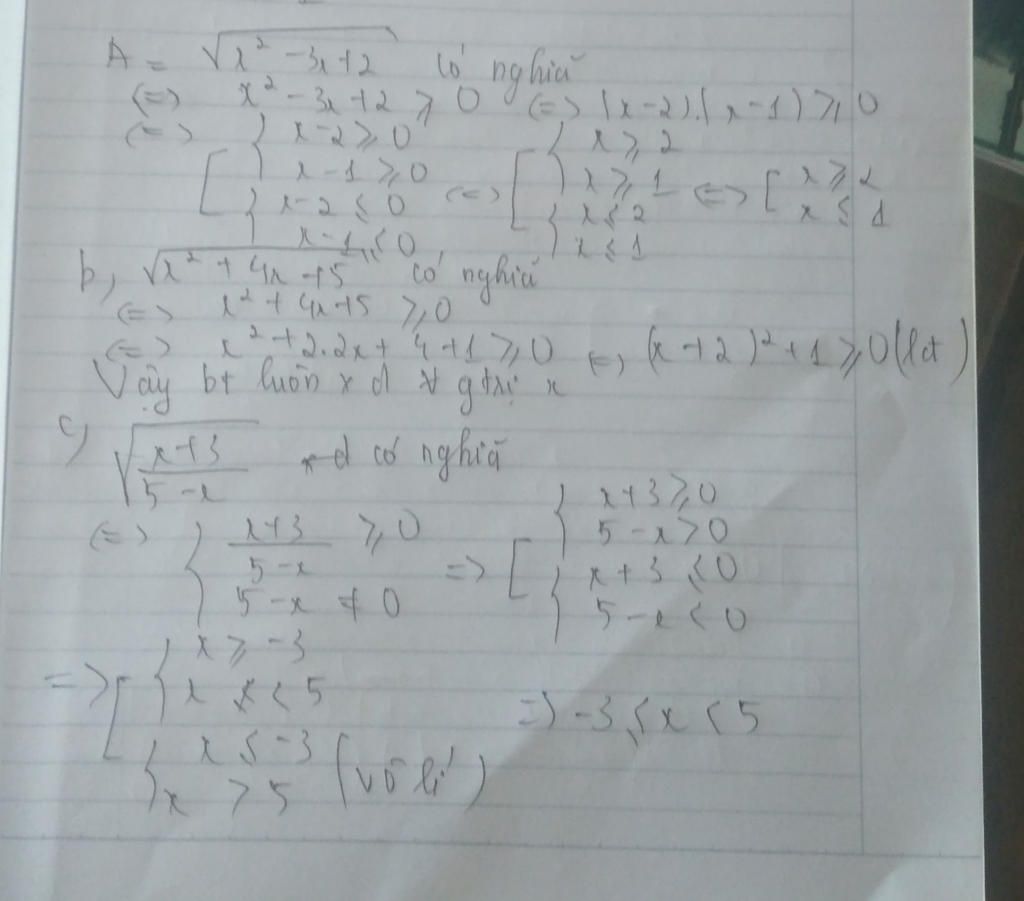 A = √(x² - 3x + 2) có nghĩã
(=) x² - 3x + 2 ⩾ 0 (=) (x - 2).(x - 1) ⩾ 0
(=) [ { x - 2 ⩾ 0
x - 1 ⩾ 0
{ x - 2 ⩽ 0
x - 1 ⩽ 0
(=) [ { x ⩾ 2
x ⩾ 1
{ x ⩽ 2
x ⩽ 1
(=) [ x ⩾ 2
x ⩽ 1
b, √(x² + 4x + 5) có nghĩã
(=) x² + 4x + 5 ⩾ 0
(=) x² + 2.2x + 4 + 1 ⩾ 0 (=) (x + 2)² + 1 ⩾ 0 (lđ)
Vậy bt luôn xđ ∀ gtrị x
c) √((x + 3)/(5 - x)) có nghĩã
(=) { (x + 3)/(5 - x) ⩾ 0
5 - x ≠ 0
=> [ { x + 3 ⩾ 0
5 - x > 0
{ x + 3 ⩽ 0
5 - x < 0
=> [ { x ⩾ -3
x < 5
{ x ⩽ -3
x > 5 (vô lí)
=> -3 ⩽ x < 5